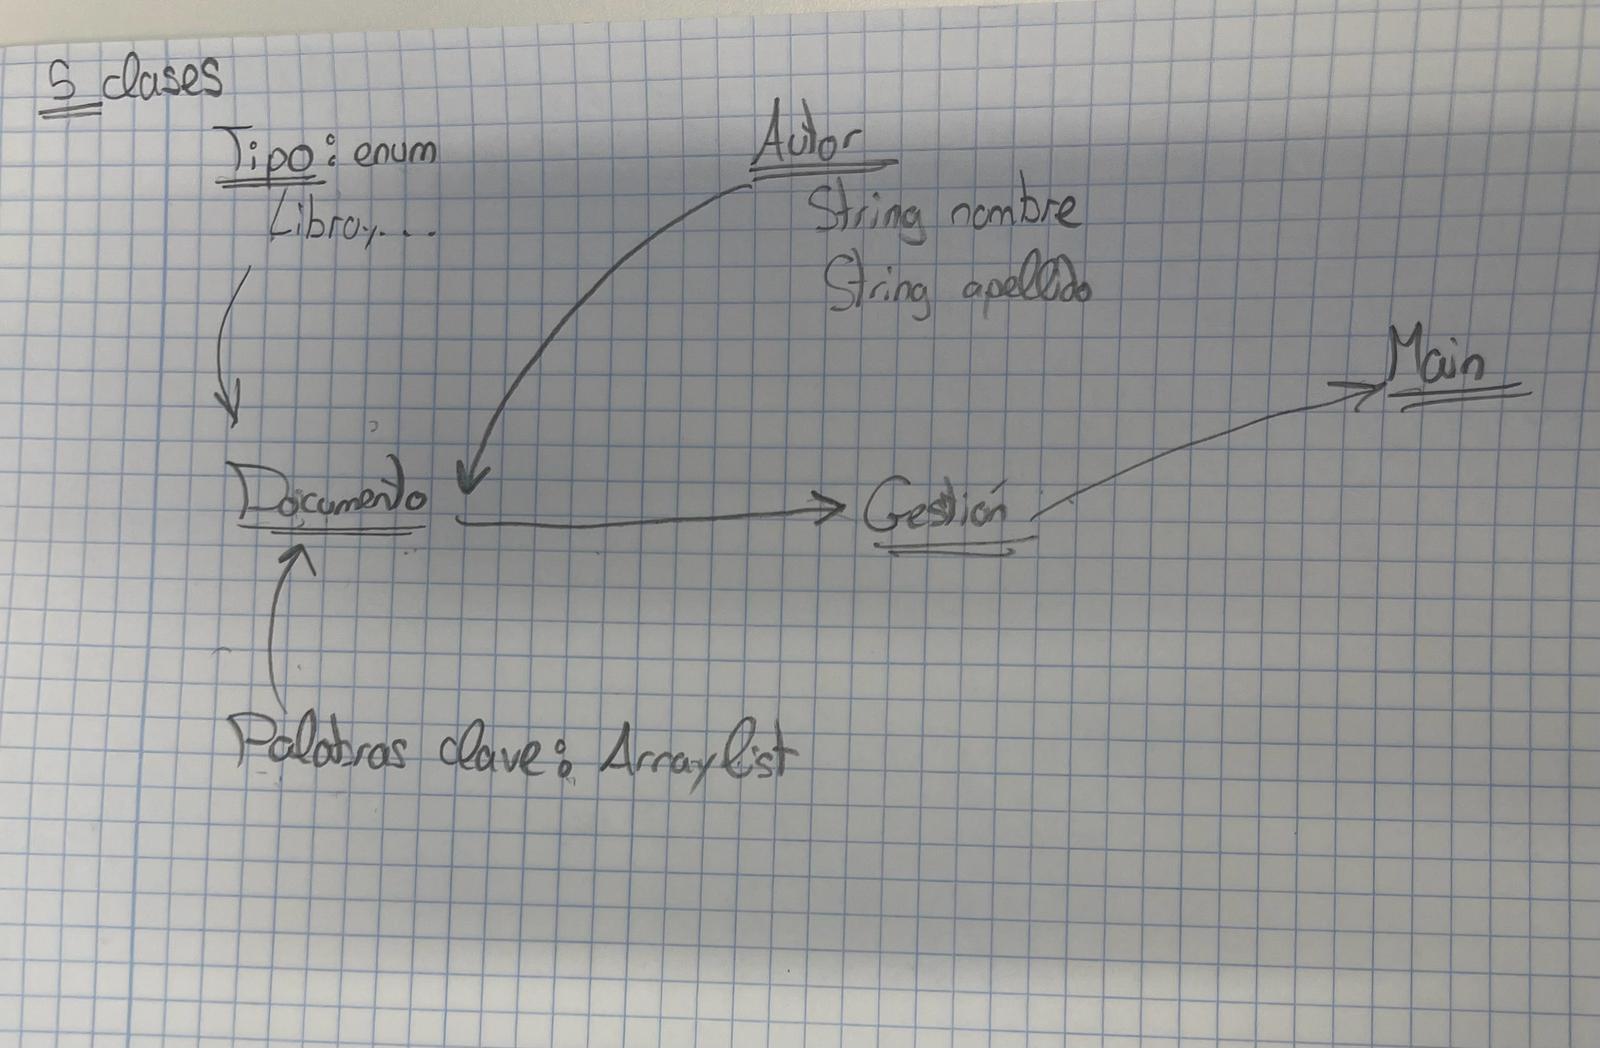 5 clases
Tipo: enum
Libro, ...
Autor
String nombre
String apellido
Main
Documento
Gestión
Palabras clave: Arraylist